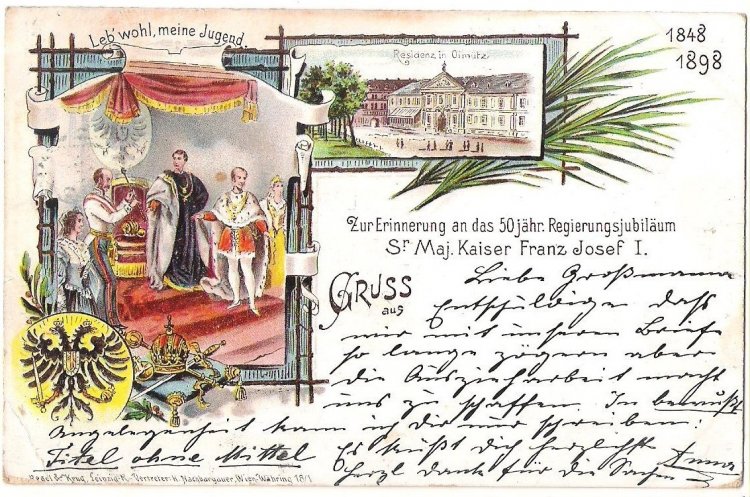 Leb' wohl, meine Jugend.
Residenz in Olmütz
1848
1898
Zur Erinnerung an das 50jähr. Regierungsjubiläum
Sr Maj. Kaiser Franz Josef I.
GRUSS
aus
Liebe Großmama
Entschuldige daß
wir mit unseren Briefe
so lange zögern aber
die Auszieharbeit macht
uns zu schaffen. In bewußt
Angelegenheit kann ich dir nur schreiben:
Titel ohne Mittel
Es küßt dich herzlichst
Anna
Herzl. Dank für die Sachen
Regel & Krug, Leipzig-R. Vertreter: H. Nachbargauer, Wien-Währing 18/1